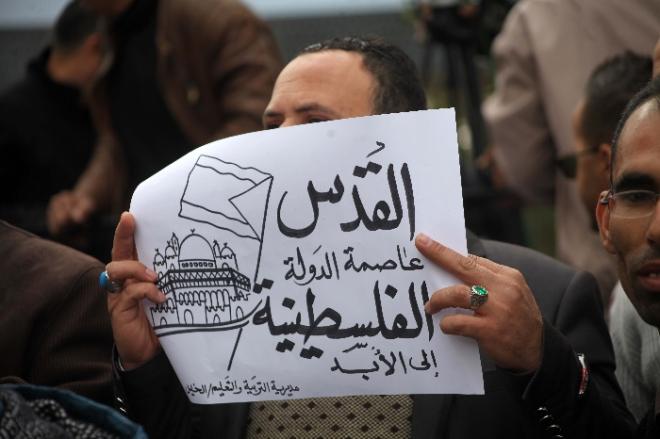 القُدس
عاصمة الدولة
الفلسطينية
إلى الأبد
مديرية التربية والتعليم/